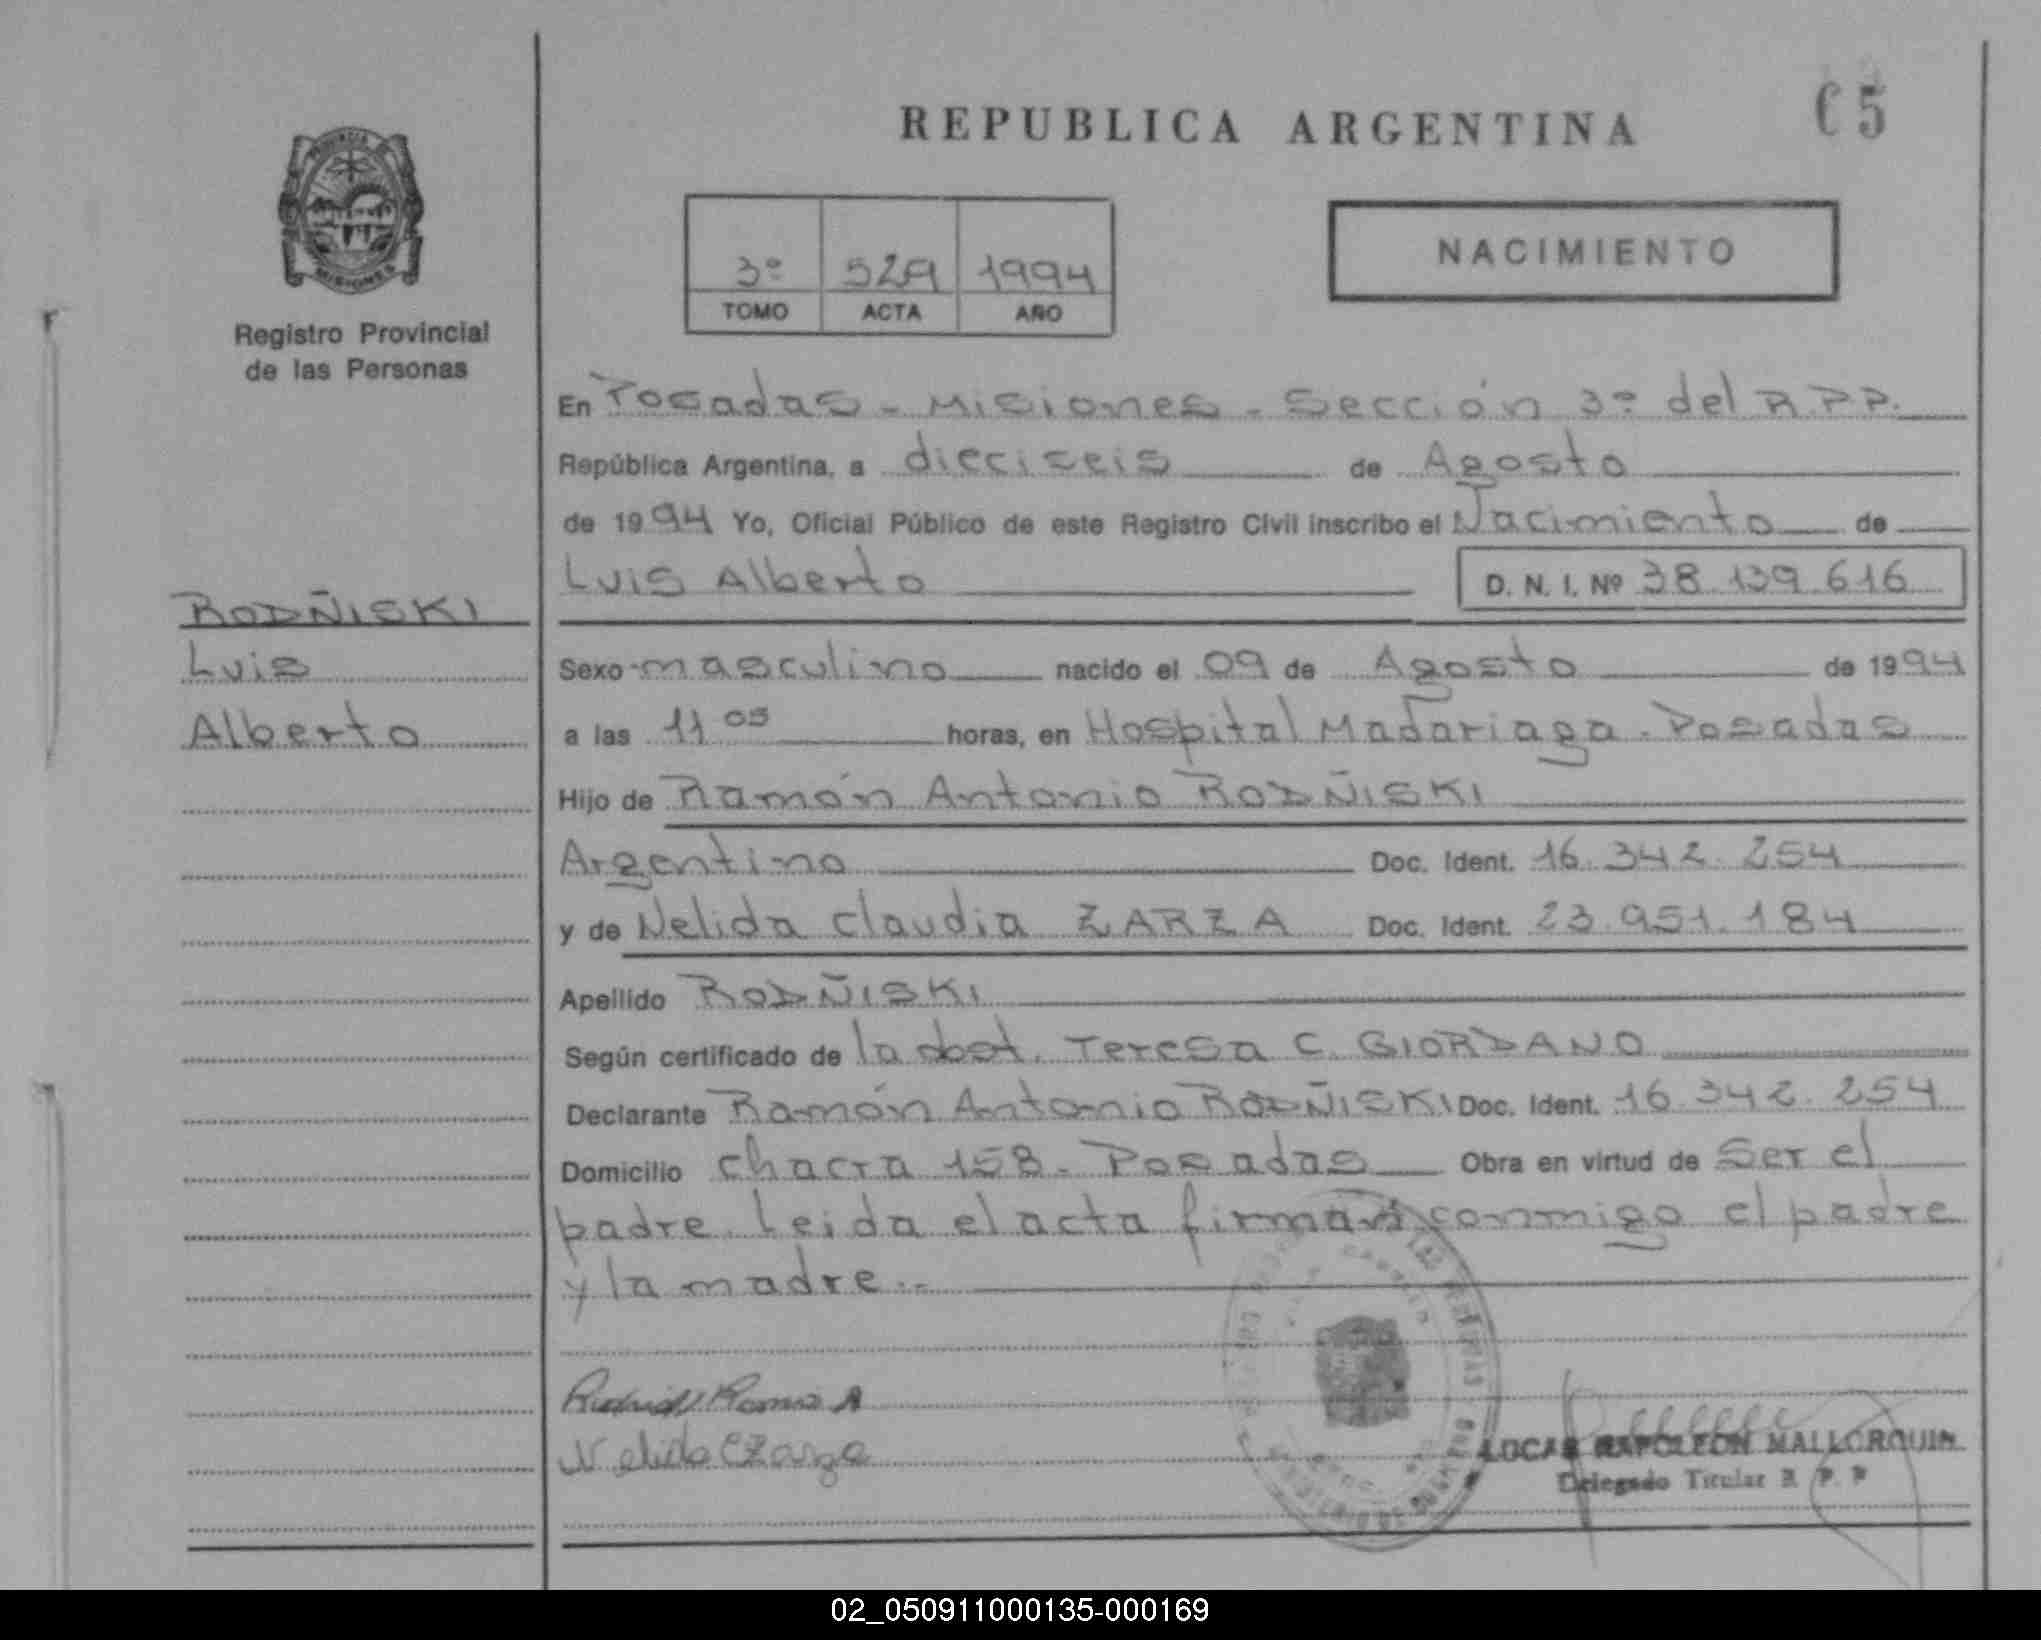 REPUBLICA ARGENTINA
65
PROVINCIA
MISIONES
Registro Provincial
de las Personas
3º 529 1994
TOMO ACTA AÑO
NACIMIENTO
En Posadas - Misiones - Sección 3º del R.P.P.
República Argentina, a dieciseis de Agosto
de 1994 Yo, Oficial Público de este Registro Civil inscribo el Nacimiento de
Luis Alberto D. N. I. Nº 38.139.616
RODÑISKI
Luis
Alberto
Sexo masculino nacido el 09 de Agosto de 1994
a las 11 05 horas, en Hospital Madariaga - Posadas
Hijo de Ramón Antonio RODÑISKI
Argentino Doc. Ident. 16.342.254
y de Nelida Claudia ZARZA Doc. Ident. 23.951.184
Apellido RODÑISKI
Según certificado de la obst. Teresa C. GIORDANO
Declarante Ramón Antonio RODÑISKI Doc. Ident. 16.342.254
Domicilio chacra 158 - Posadas Obra en virtud de Ser el
padre. Leida el acta firman conmigo el padre
y la madre.-
Nelida C Zarza
LUCAS NAPOLEON MALLORQUIN
Delegado Titular R. P. P
02_050911000135-000169